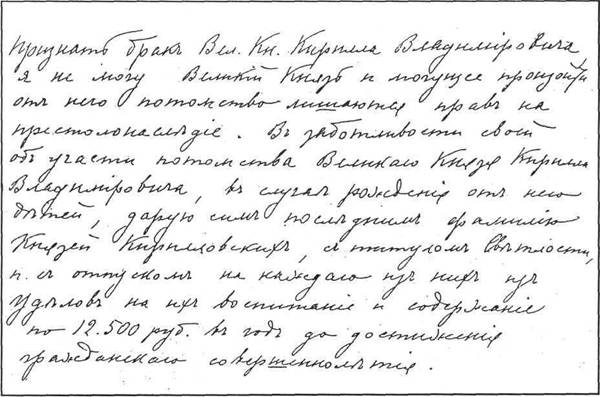 Признать бракъ Вел. Кн. Кирилла Владиміровича
я не могу Великій Князь и могущее произойти
отъ него потомство лишаются правъ на
престолонаслѣдіе. Въ заботливости своей
объ участи потомства Великаго Князя Кирилла
Владиміровича, въ случаѣ рожденія отъ него
дѣтей, дарую симъ послѣднимъ фамилію
Князей Кирилловскихъ, съ титуломъ Свѣтлости,
и съ отпускомъ на каждаго изъ нихъ изъ
Удѣловъ на ихъ воспитаніе и содержаніе
по 12.500 руб. въ годъ до достиженія
гражданскаго совершеннолѣтія.